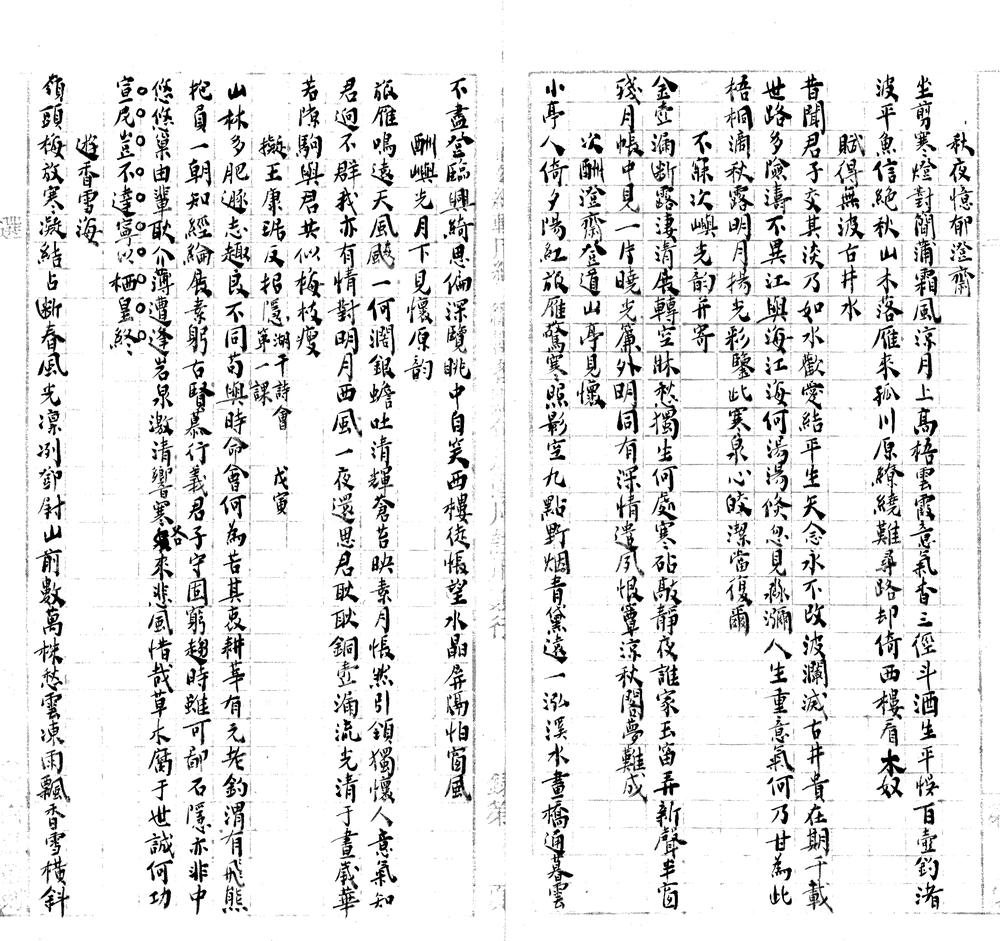 秋夜憶郁澄齋
坐剪寒燈對簡蒲霜風涼月上高梧雲霞意氣香三徑斗酒生平悞百壺釣渚
波平魚信絕秋山木落雁來孤川原繚繞難尋路却倚西樓看木奴
賦得無波古井水
昔聞君子交其淡乃如水歡愛結平生矢念永不改波瀾滅古井貴在期千載
世路多險濤不異江與海江海何湯湯倏忽見淼瀰人生重意氣何乃甘為此
梧桐滴秋露明月揚光彩鑒此寒泉心皎潔當復爾
不寐次嶼光韵并寄
金壺漏斷露淒清展轉空牀愁獨生何處寒砧敲靜夜誰家玉笛弄新聲半窗
殘月帳中見一片曉光簾外明同有深情遣夙恨簟涼秋閣夢難成
次酬澄齋登道山亭見懷
小亭人倚夕陽紅旅雁驚寒照影空九點野烟青黛遠一泓溪水畫橋通暮雲
不盡登臨興綺思偏深覽眺中自笑西樓徒悵望水晶屏隔怕窗風
酬嶼光月下見懷原韵
旅雁鳴遠天風颼一何濶銀蟾吐清輝蒼苔映素月悵然引領獨懷人意氣知
君迥不群我亦有情對明月西風一夜還思君耿耿銅壺漏流光清于晝歲華
若隙駒與君共似梅枝瘦
擬王康琚反招隱 湖干詩會第一課 戊寅
山林多肥遯志趣良不同苟與時命會何為苦其衷耕莘有元老釣渭有飛熊
抱負一朝知經綸展素躬古賢慕行義君子守固窮趨時雖可鄙石隱亦非中
悠悠巢由輩耿介薄遭逢岩泉激清響寒谷來悲風惜哉草木腐于世誠何功
宣尼豈不達寧以栖皇終
遊香雪海
嶺頭梅放寒凝結占斷春風光凛冽鄧尉山前數萬株愁雲凍雨飄香雪橫斜